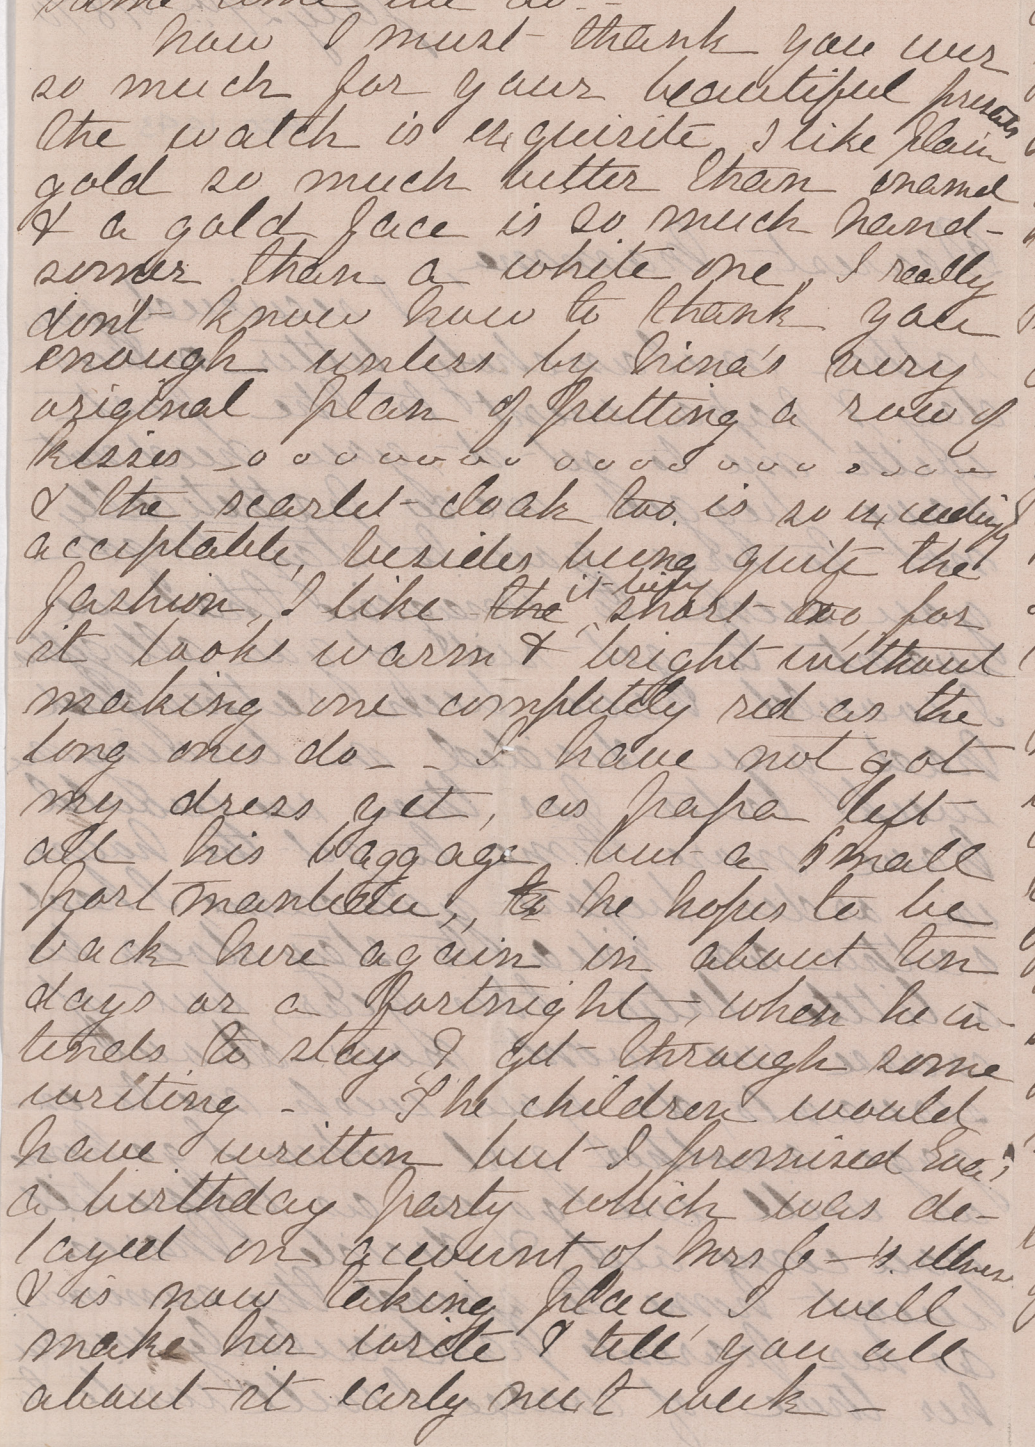 same time we do -
Now I must thank you ever
so much for your beautiful presents
the watch is exquisite, I like plain
gold so much better than enamel
& a gold face is so much hand-
somer than a white one, I really
don't know how to thank you
enough unless by Nina's very
original plan of putting a row of
kisses - o o o o o o o o o o o o o o o o o o
& the scarlet cloak too. is so exceedingly
acceptable, besides being quite the
fashion, I like the it being short too, for
it looks warm & bright without
making one completely red as the
long ones do - - I have not got
my dress yet, as papa left
all his baggage, but a small
port manteau, to he hopes to be
back here again in about ten
days or a fortnight, when he in-
tends to stay & get through some
writing - The children would
have written but I promised Eva
a birthday party which was de-
layed on account of Mrs C-'s illness
& is now taking place, I will
make her write & tell you all
about it early next week -